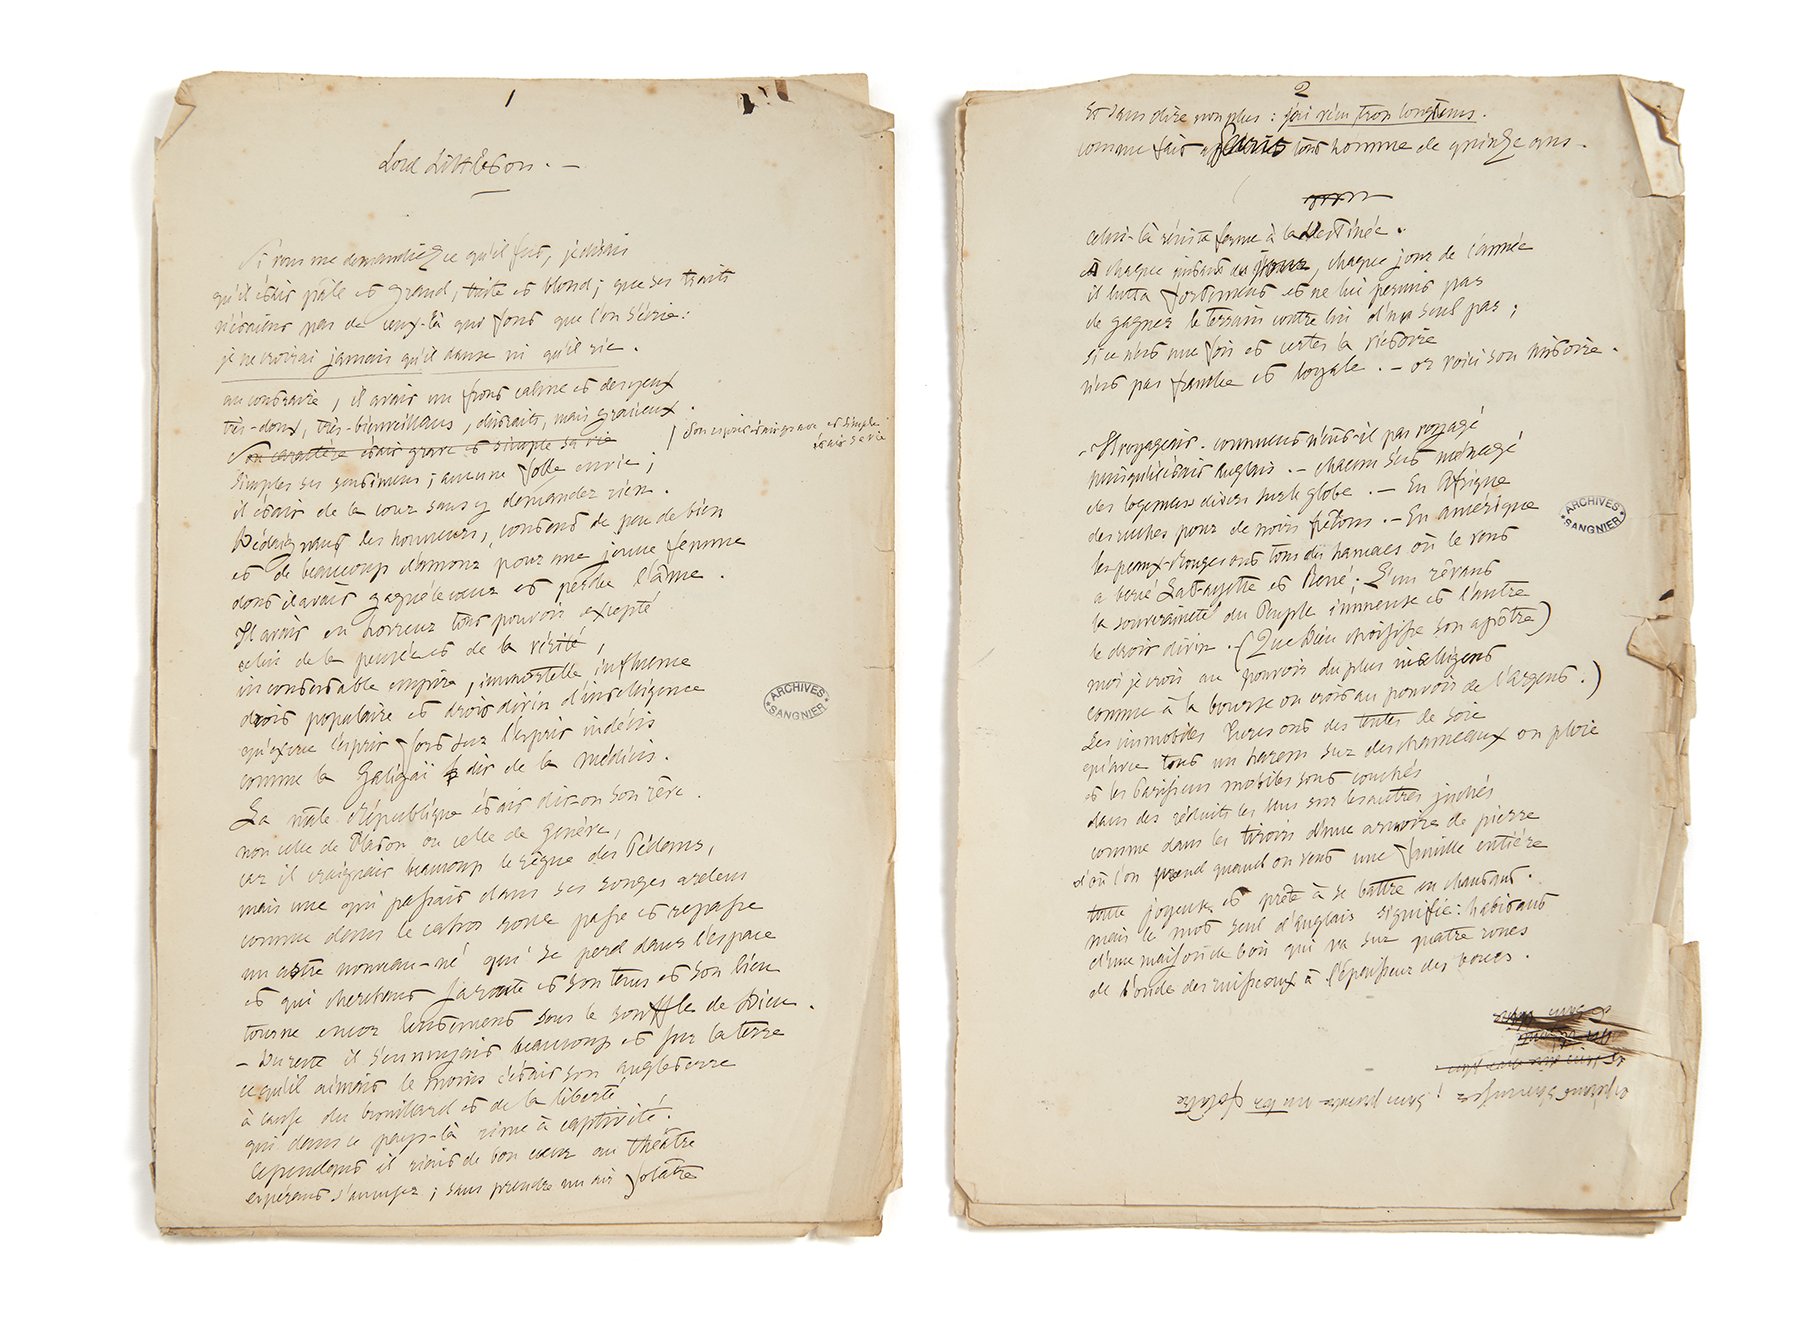 1
Lord Littleton. —
Si vous me demandiez ce qu'il fut, je dirais
qu'il était pâle et grand, triste et blond ; que ses traits
n'étaient pas de ceux-là qui font que l'on s'écrie :
je ne croirai jamais qu'il danse ni qu'il rie.
au contraire, il avait un front calme et des yeux
très-doux, très-bienveillans, distraits, mais gracieux.
Son caractère était grave et simple sa vie
/ Son esprit était grave et simple
était sa vie
Simples ses sentimens ; aucune folle envie ;
il était de la cour sans y demander rien.
Dédaignant les honneurs, content de peu de bien
et de beaucoup d'amour pour une jeune femme
dont il avait gagné le cœur et perdu l'âme.
Il avait en horreur tout pouvoir excepté
celui de la pensée et de la vérité,
incontestable empire, immortelle influence
droit populaire et droit divin d'intelligence
qu'exerce l'esprit fort sur l'esprit indécis
comme la Galigaï dit de la Médicis.
La mâle République était dit-on son rêve
non celle de Platon ou celle de Genève,
car il craignait beaucoup le règne des Pédans,
mais une qui passait dans ses songes ardens
comme dans le cahos roule passe et repasse
un astre nouveau-né qui se perd dans l'espace
et qui cherchant sa route et son tems et son lieu
tourne encor lentement sous le souffle de Dieu.
— Du reste il s'ennuyait beaucoup et sur la terre
ce qu'il aimait le moins c'était son angleterre
à cause du brouillard et de la liberté
qui dans ce pays-là rime à captivité.
Cependant il riait de bon cœur au théâtre
espérant s'amuser ; sans prendre un air folâtre
2
Et sans dire non plus : j'ai vécu trop longtems.
comme fait à Paris tout homme de quinze ans.
celui-là résista ferme à la destinée.
à chaque instant du jour, chaque jour de l'année
il lutta fortement et ne lui permit pas
de gagner le terrain contre lui d'un seul pas ;
si ce n'est une fois et certes la victoire
n'est pas franche et loyale. — or voici son histoire.
— Il voyageait. comment n'eût-il pas voyagé
puisqu'il était Anglais. — chacun s'est ménagé
des logemens divers sur le globe. — En Afrique
des ruches pour de noirs frêlons. — En amérique
les peaux-Rouges ont tous des hamacs où le vent
a bercé La Fayette et René. L'un rêvant
la souveraineté du Peuple immense et l'autre
le droit divin. (Que Dieu choisisse son apôtre)
moi je crois au pouvoir du plus intelligent
comme à la bourse on croit au pouvoir de l'argent.)
Les immobiles Turcs ont des tentes de soie
qu'avec tout un harem sur des chameaux on ploie
et les Parisiens mobiles sont couchés
dans des réduits les uns sur les autres juchés
comme dans les tiroirs d'une armoire de pierre
d'où l'on prend quand on veut une famille entière
toute joyeuse et prête à se battre en chantant.
mais le mot seul d'anglais signifie : habitant
d'une maison de bois qui va sur quatre roues
de l'onde des ruisseaux à l'épaisseur des boues.
espérant s'amuser ; sans prendre un air folâtre
ARCHIVES
SANGNIER
ARCHIVES
SANGNIER